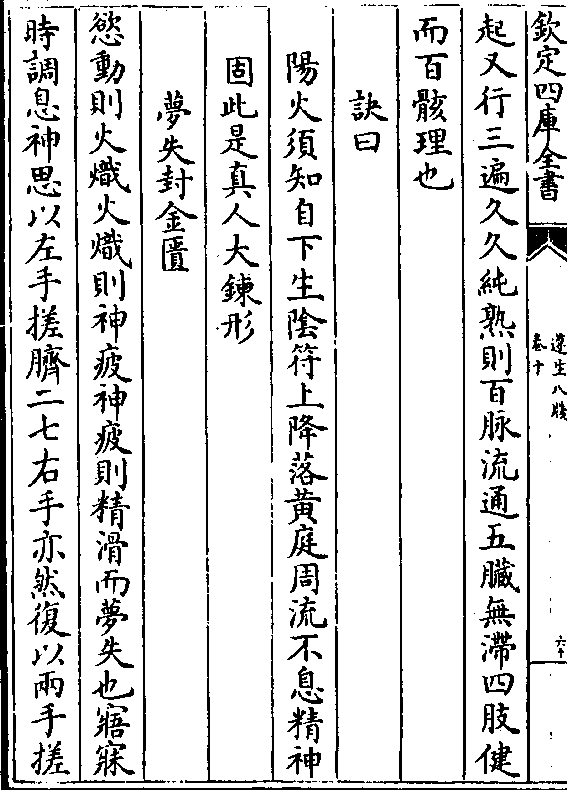 欽定四庫全書
遵生八牋
卷十
六十
起又行三遍久久純熟則百脉流通五臟無滯四肢健
而百骸理也
訣曰
陽火須知自下生陰符上降落黄庭周流不息精神
固此是真人大鍊形
夢失封金匱
慾動則火熾火熾則神疲神疲則精滑而夢失也寤寐
時調息神思以左手搓臍二七右手亦然復以兩手搓